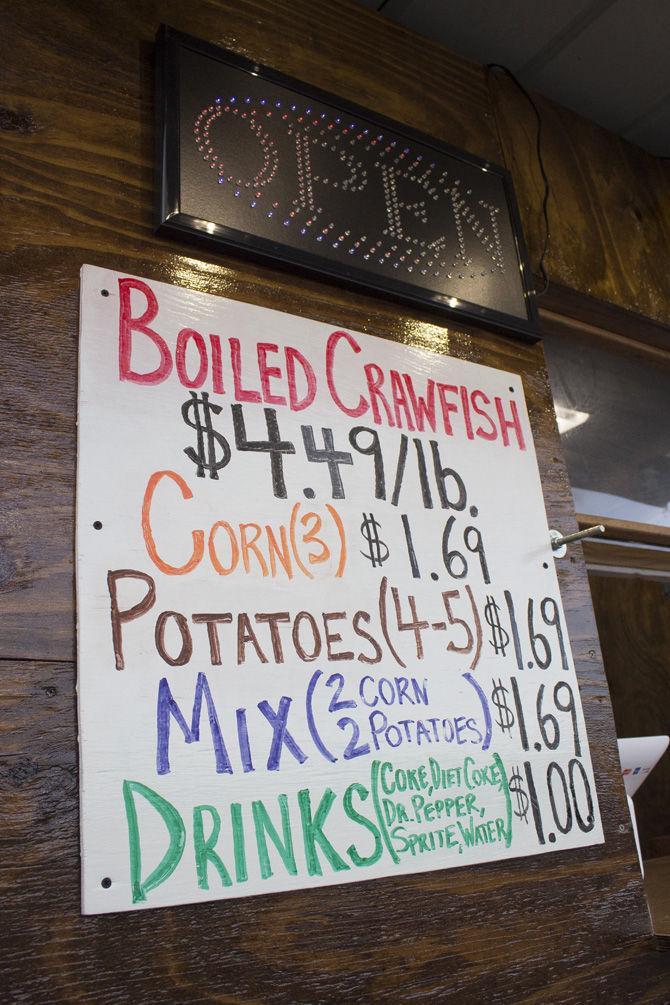 OPEN
BOILED CRAWFISH
$4.49/lb.
CORN (3) $1.69
POTATOES (4-5) $1.69
MIX (2 CORN
2 POTATOES) $1.69
DRINKS (COKE, DIET COKE,
DR. PEPPER,
SPRITE, WATER) $1.00